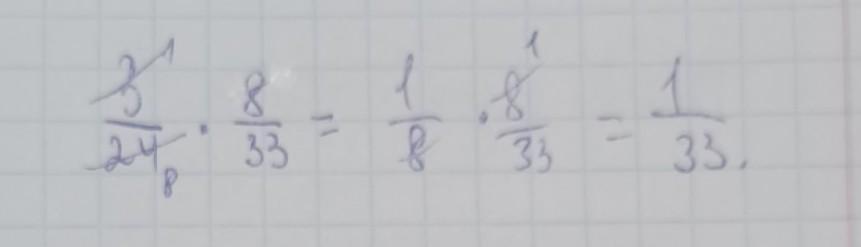 3/24 · 8/33 = 1/8 · 8/33 = 1/33.